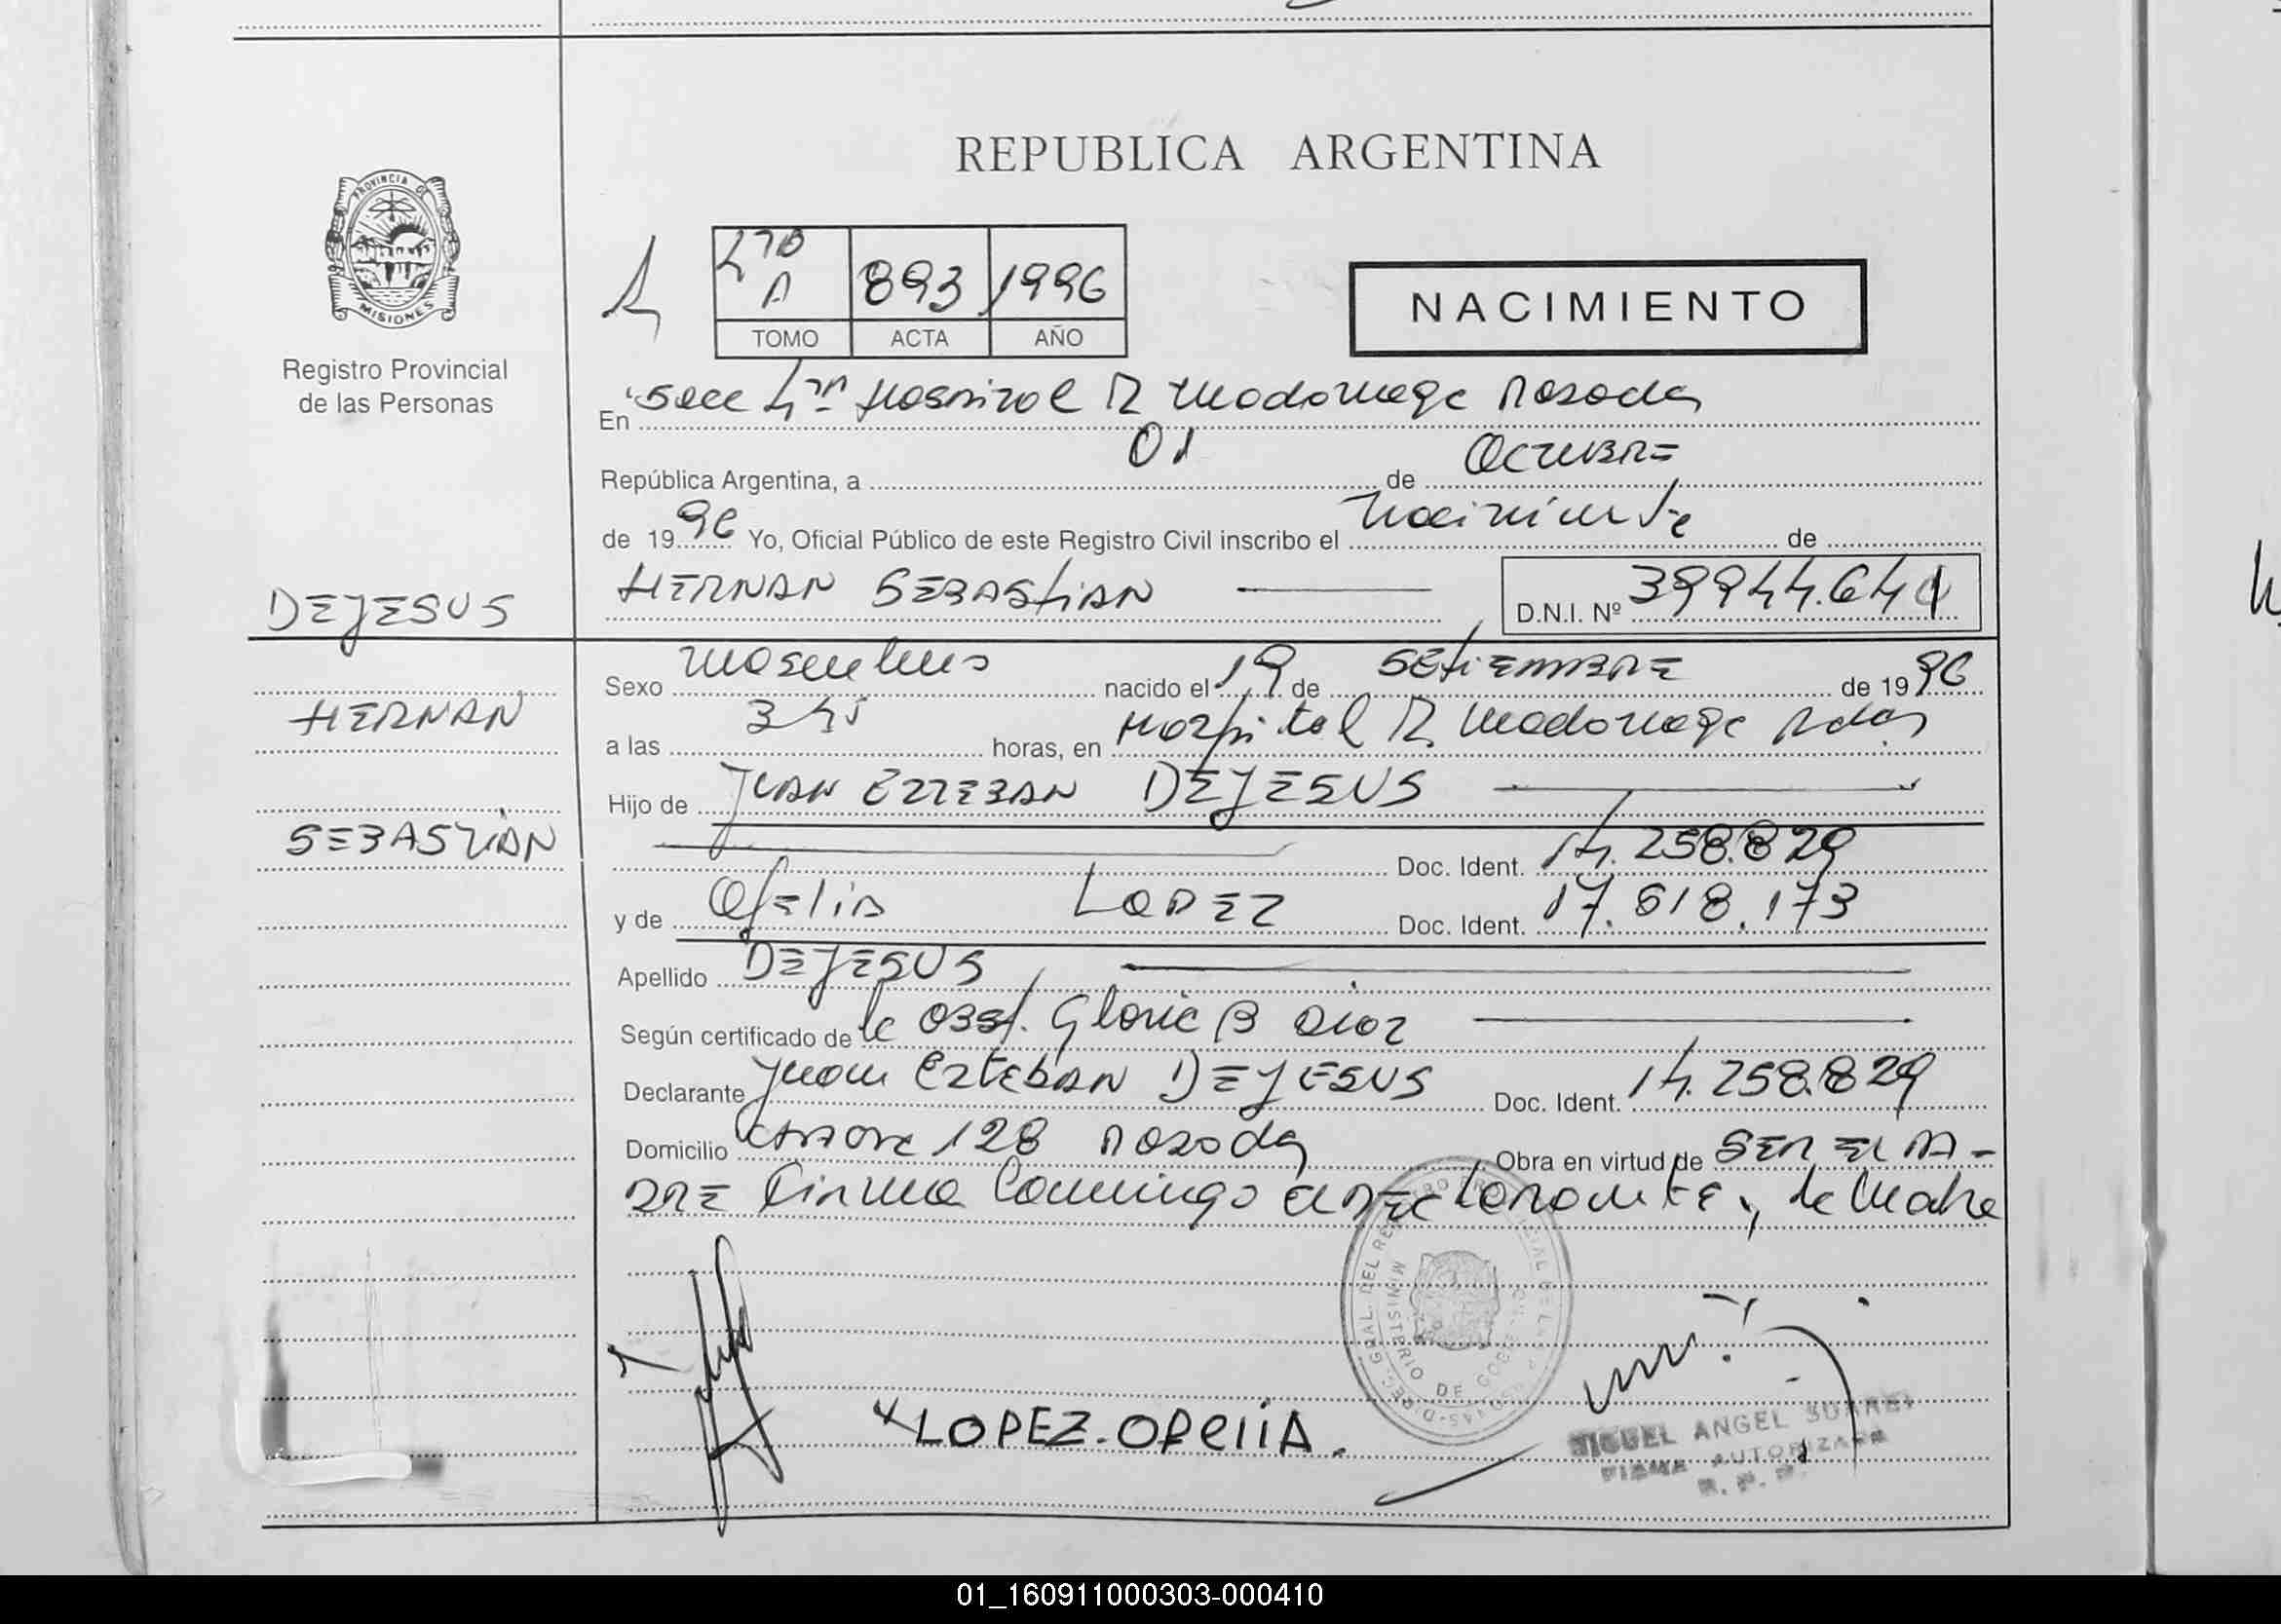 REPUBLICA ARGENTINA
PROVINCIA DE
MISIONES
Registro Provincial
de las Personas
A 893 1996
TOMO ACTA AÑO
NACIMIENTO
En Secc Hospital R Madariaga Posadas
República Argentina, a 01 de OCTUBRE
de 1996 Yo, Oficial Público de este Registro Civil inscribo el Nacimiento de
HERNAN SEBASTIAN D.N.I. Nº
DEJESUS
HERNAN
SEBASTIAN
Sexo Masculino nacido el 19 de SETIEMBRE de 1996
a las 345 horas, en Hospital R. Madariaga Pdas
Hijo de JUAN ESTEBAN DEJESUS
Doc. Ident. 14.258.829
y de Ofelia LOPEZ Doc. Ident. 17.618.173
Apellido DEJESUS
Según certificado de la Obst. Gloria B Diaz
Declarante Juan Esteban DEJESUS Doc. Ident. 14.258.829
Domicilio 128 Posadas Obra en virtud de SER EL PA-
DRE Firma Conmigo el DEclarante y la Madre
LOPEZ. OFeliA.
MIGUEL ANGEL SUAREZ
FIRMA AUTORIZADA
R. P. P.
01_160911000303-000410